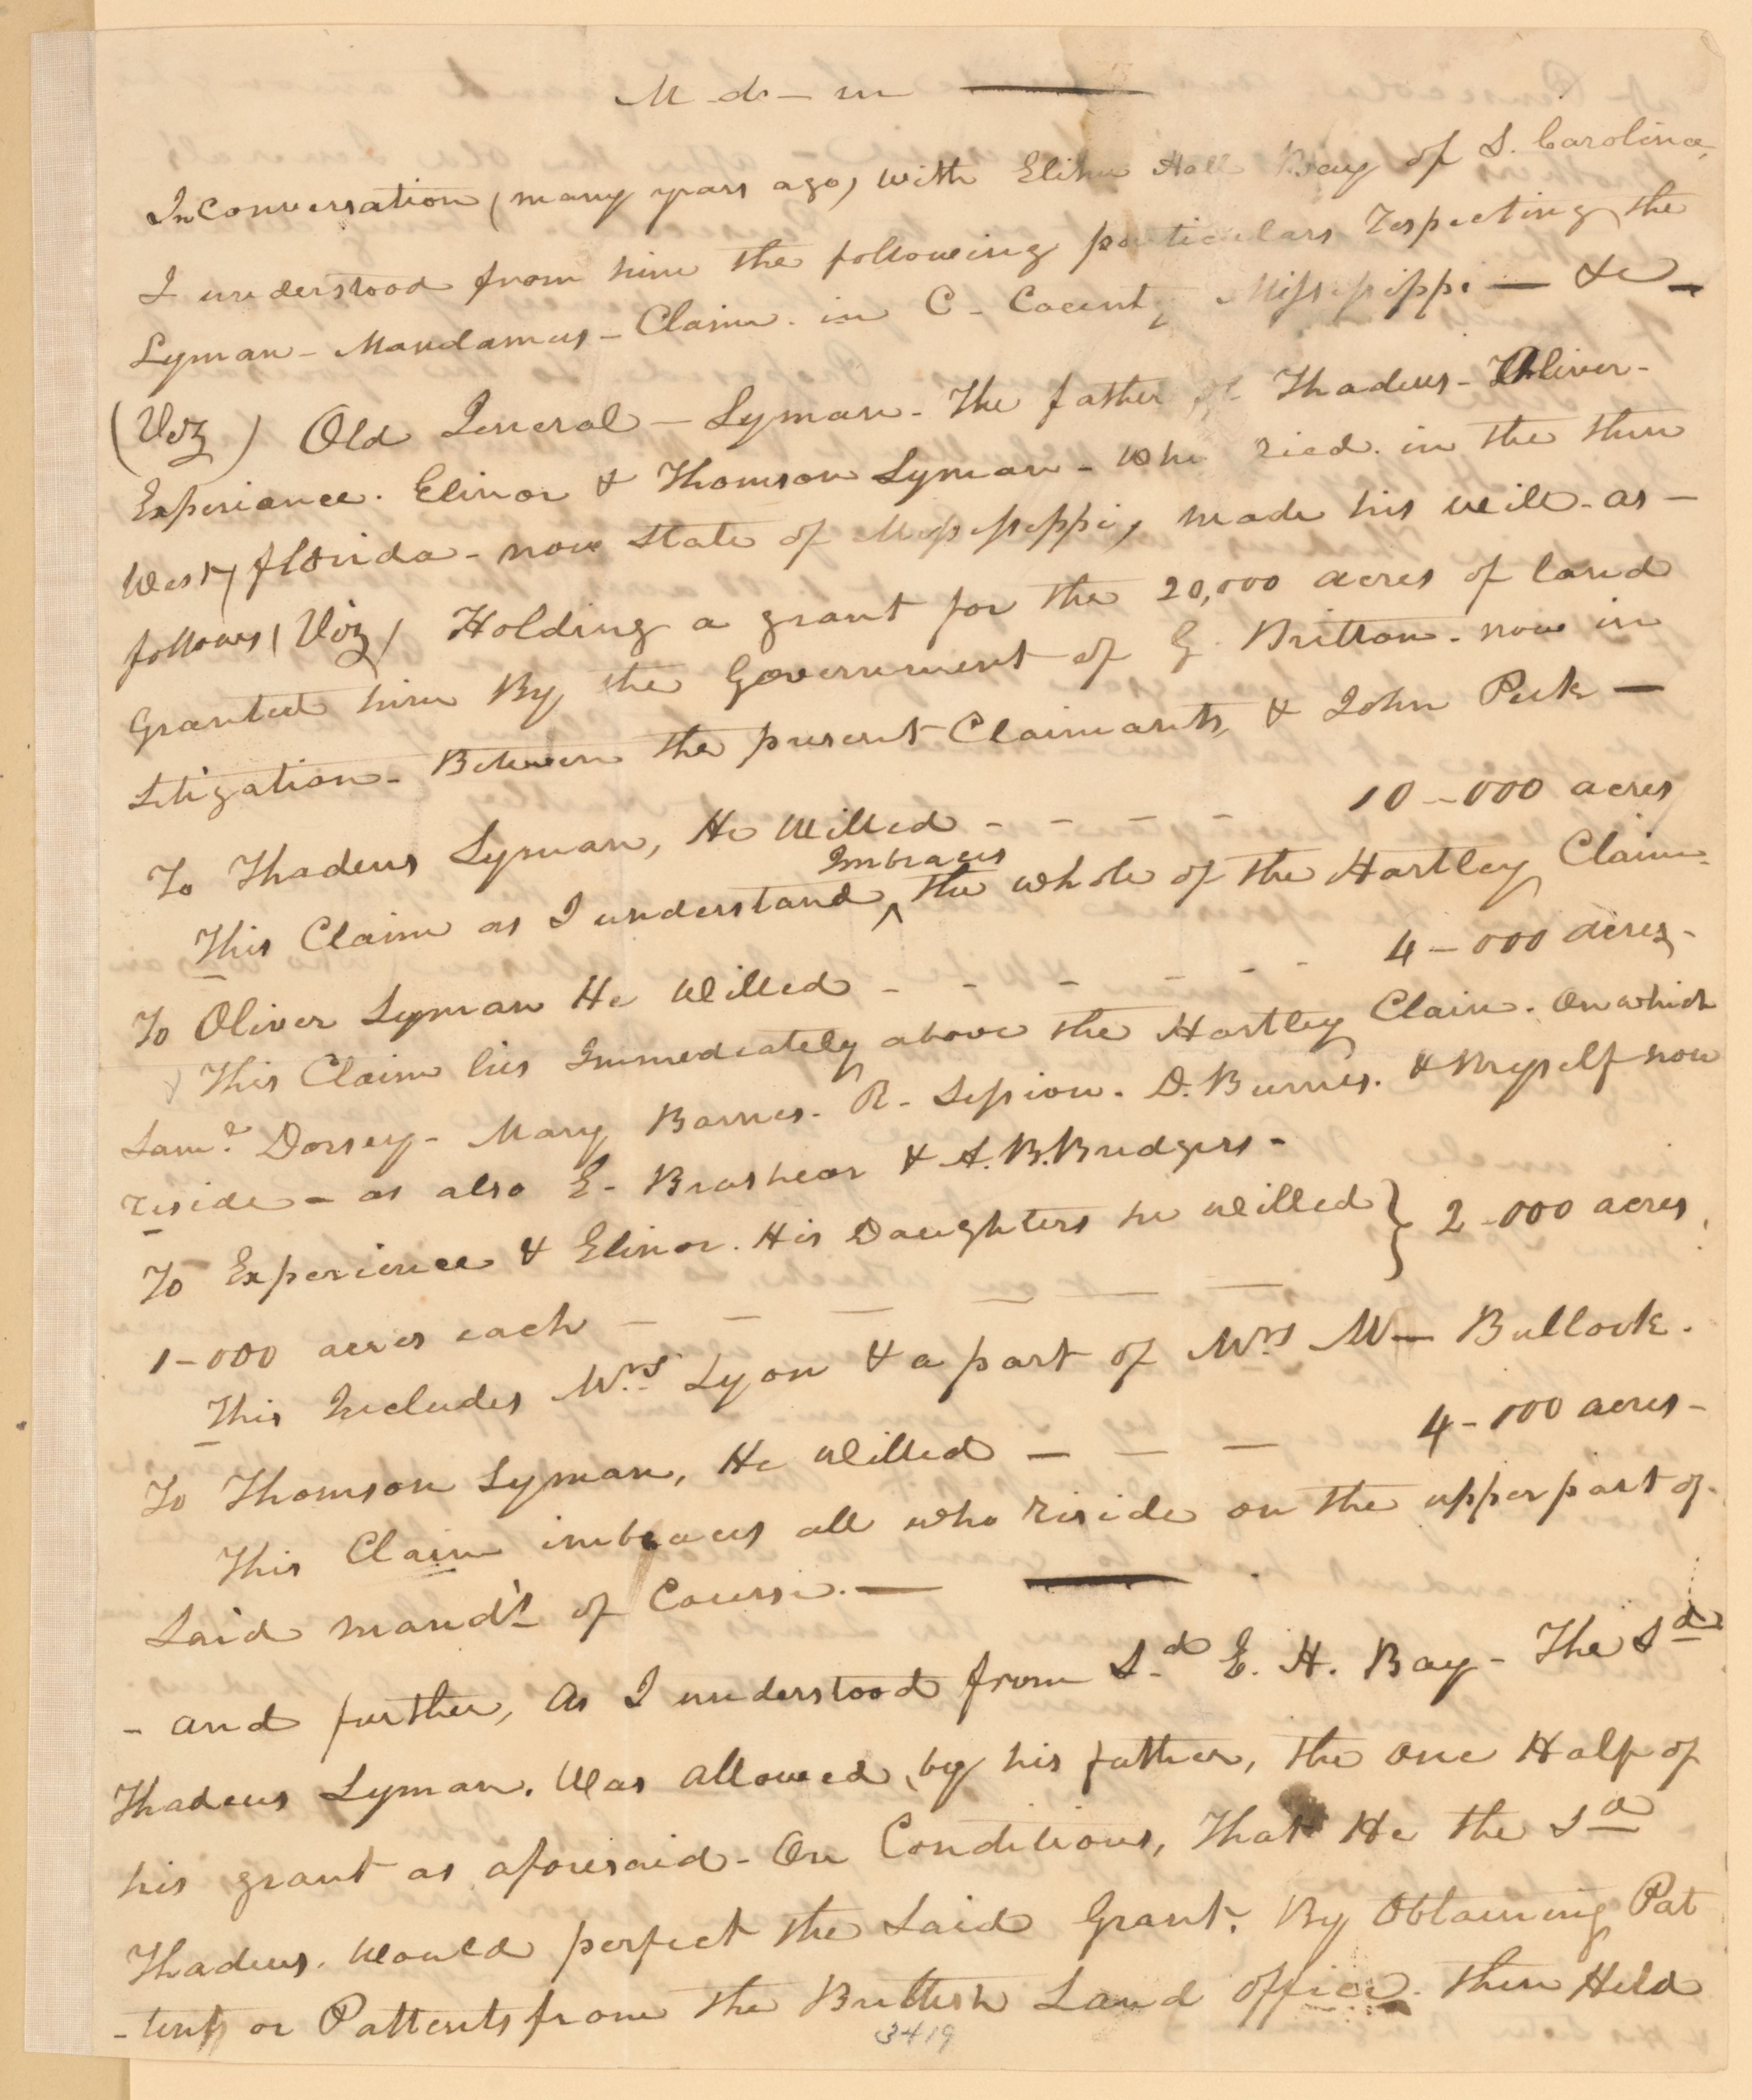 M-do-m
In Conversation (many years ago) with Elihu Hall Bay of S. Carolina,
I understood from him the following particulars respecting the
Lyman - Mandamus - Claim. in C- County Mississippi — &c —
(Viz) Old General - Lyman - The father of Thadeus - Oliver -
Experiance. Elinor & Thomson Lyman - who died. in the then
West florida - now State of Mississippi, made his will - as -
follows (Viz) Holding a grant for the 20,000 acres of land
Granted him By the Government of G. Britton - now in
Litigation - Between the present Claimants, & John Peck —
To Thadeus Lyman, He Willed - - - - 10-000 acres
This Claim as I understand ^ Imbraces the whole of the Hartley Claim.
To Oliver Lyman He Willed - - - - - - 4-000 acres -
This Claim lies Immediately above the Hartley Claim. On which
Saml. Dorsey - Mary Barnes. R- Session. D. Burnes. & Myself now
reside - as also E- Brashear & A. B. Bridgers -
To Experience & Elinor. His Daughters he willed } 2-000 acres,
1-000 acres each — — — — — —
This Includes Mrs. Lyon & a part of Mrs M— Bullock.
To Thomson Lyman, He Willed — — — 4-000 acres -
This Claim imbraces all who reside on the upper part of.
Said mand's of Course. —
- and further, As I understood from Sd. E. H. Bay - The Sd
Thadeus Lyman. Was allowed, by his father, the one Half of
his grant as aforesaid - On Conditions, That He the Sd
Thadeus. Would perfect the Said Grant. By Obtaining Pat
-tents or Pattents from the Brittish Land office. then Held
3419